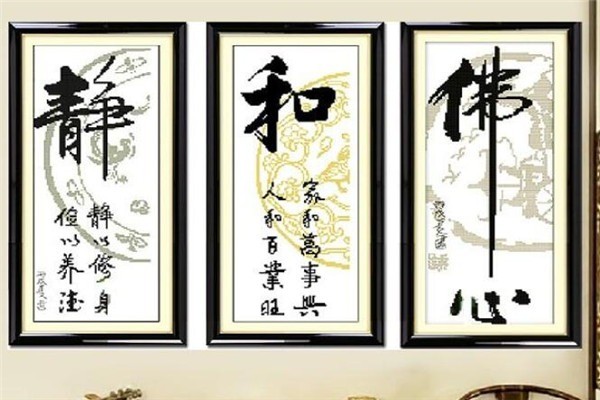 静
静以修身
俭以养德
和
家和萬事興
人和百業旺
佛
心